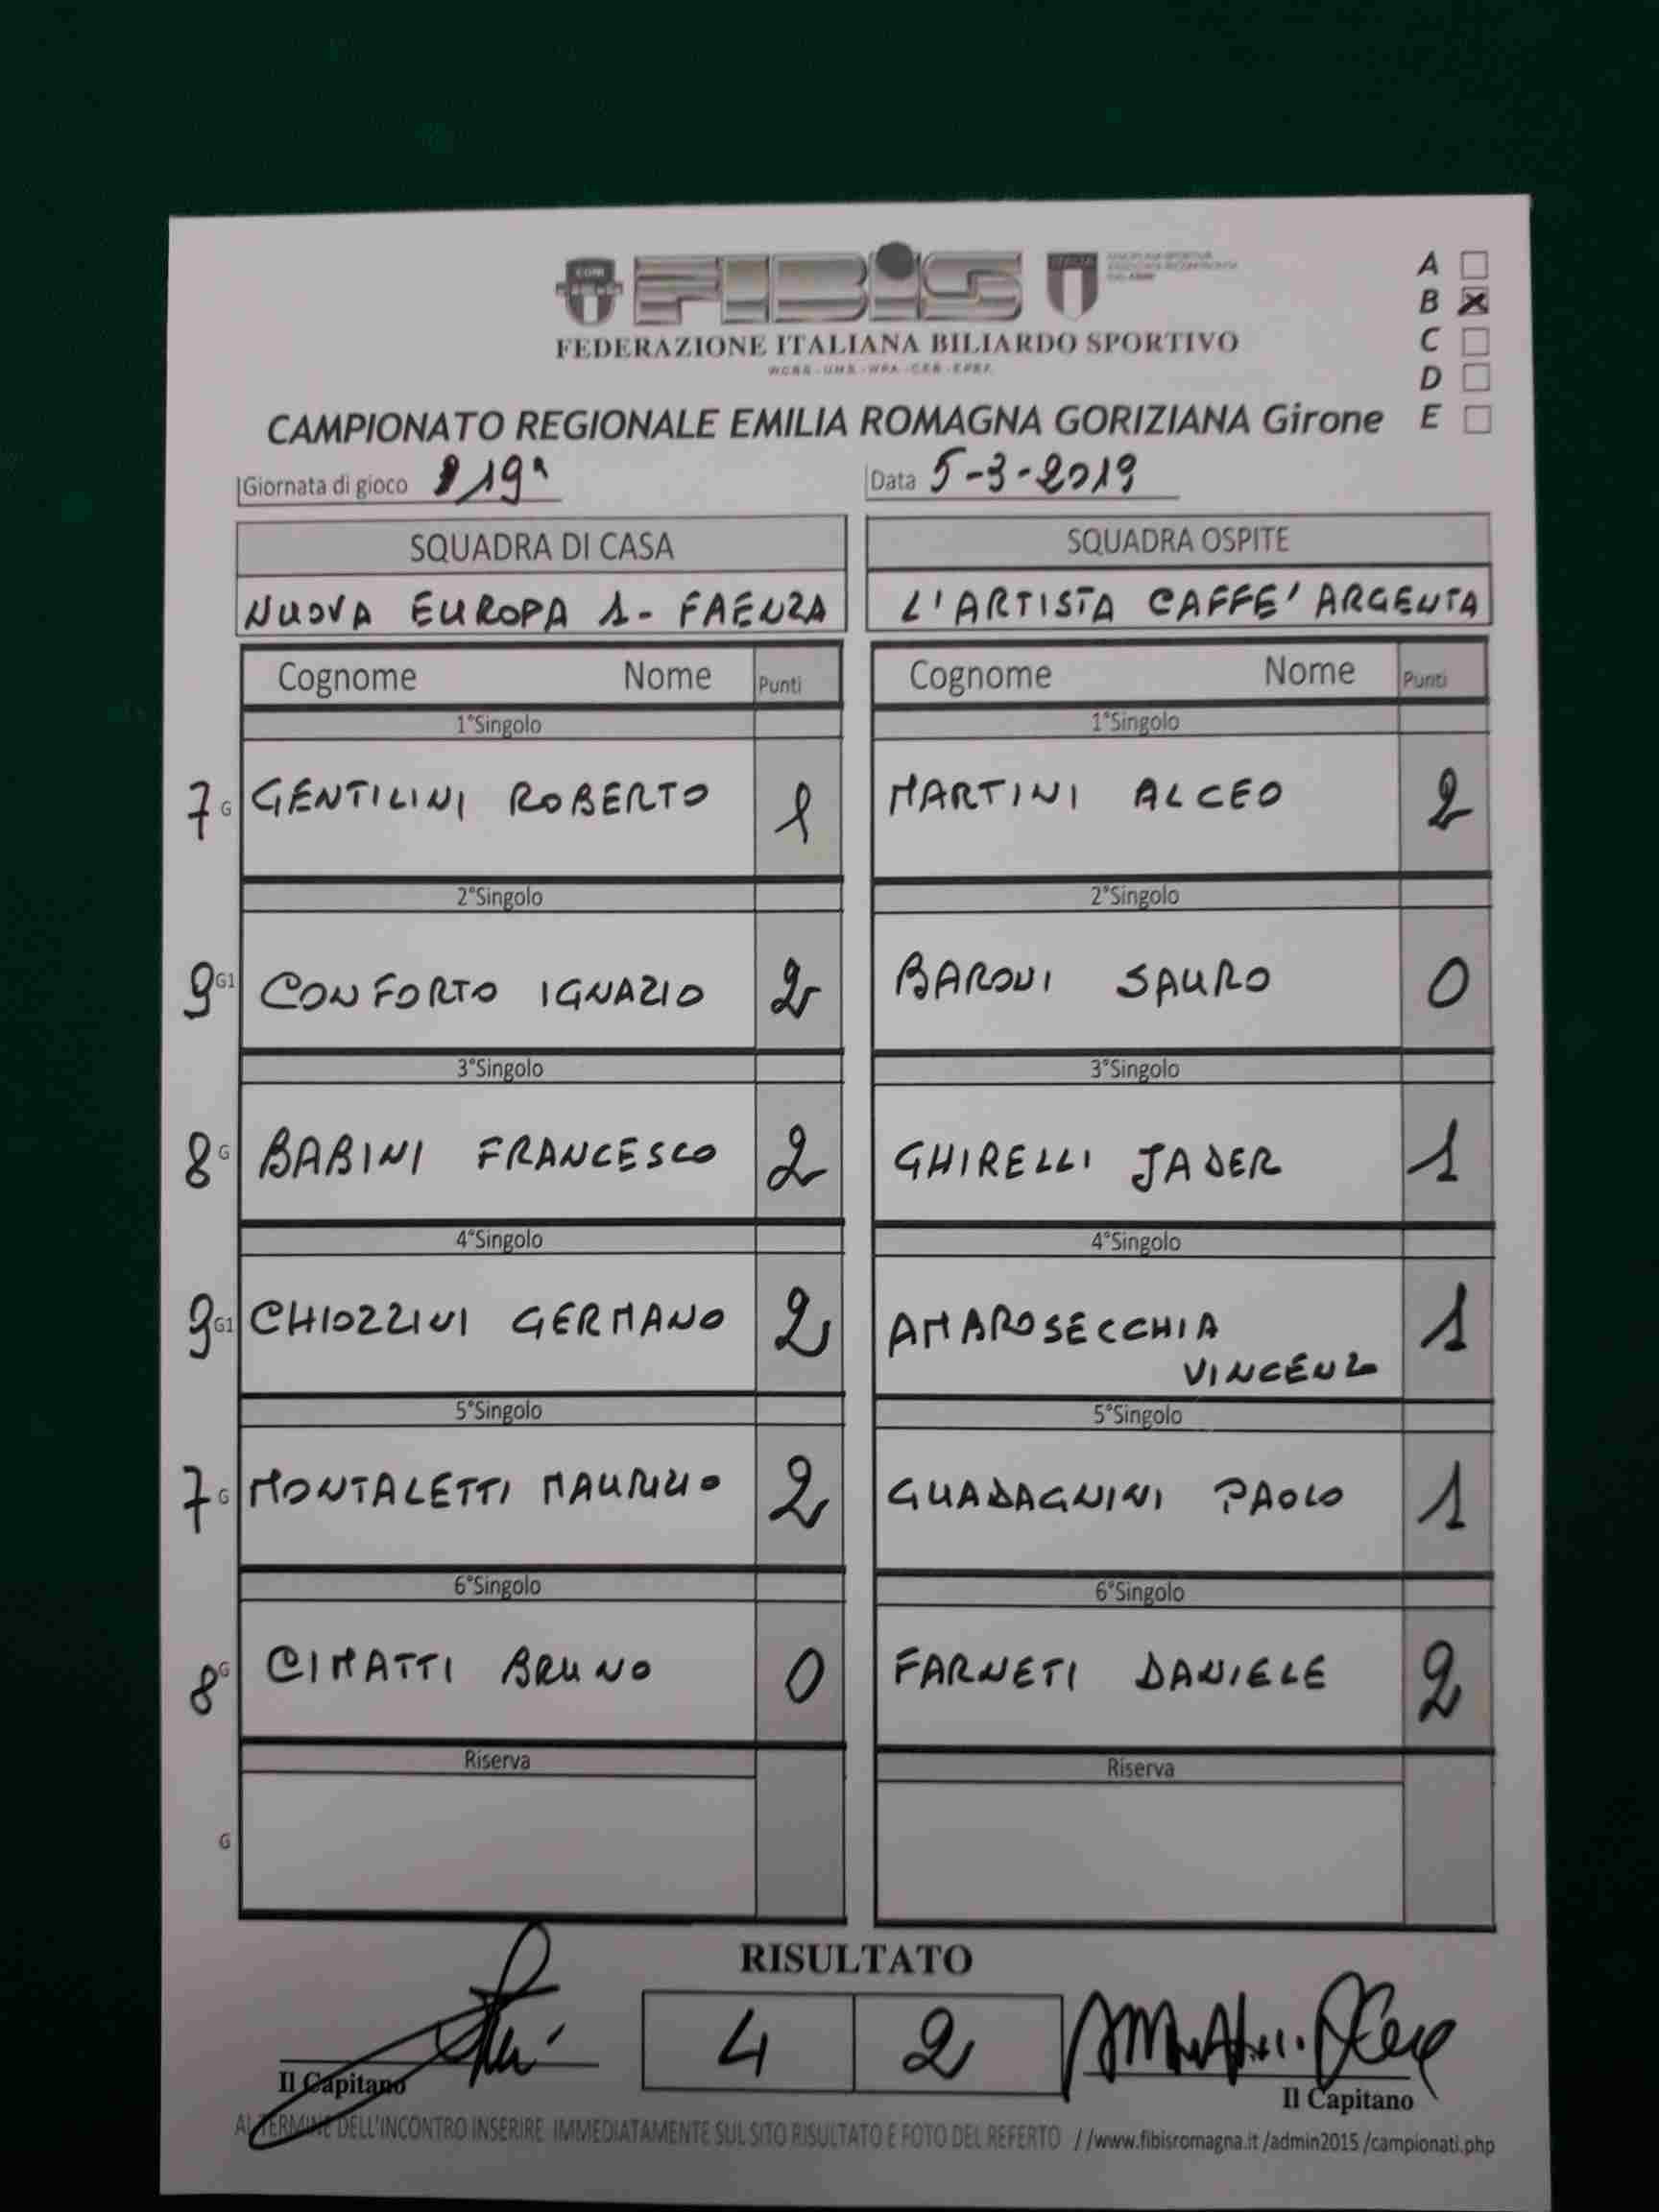 CONI
FIBIS
A
B X
FEDERAZIONE ITALIANA BILIARDO SPORTIVO
C
WCBS - UMB - WPA - CEB - EPBF
D
CAMPIONATO REGIONALE EMILIA ROMAGNA GORIZIANA Girone E
Giornata di gioco 19ª Data 5-3-2019
SQUADRA DI CASA SQUADRA OSPITE
NUOVA EUROPA 1 - FAENZA L'ARTISTA CAFFE' ARGENTA
Cognome Nome Punti Cognome Nome Punti
1°Singolo 1°Singolo
7 G GENTILINI ROBERTO 1 MARTINI ALCEO 2
2°Singolo 2°Singolo
9 G1 CONFORTO IGNAZIO 2 BARONI SAURO 0
3°Singolo 3°Singolo
8 G BABINI FRANCESCO 2 GHIRELLI JADER 1
4°Singolo 4°Singolo
9 G1 CHIOZZINI GERMANO 2 AMAROSECCHIA 1
VINCENZO
5°Singolo 5°Singolo
7 G MONTALETTI MAURIZIO 2 GUADAGNINI PAOLO 1
6°Singolo 6°Singolo
8 G CIMATTI BRUNO 0 FARNETI DANIELE 2
Riserva Riserva
G
RISULTATO
4 2
Il Capitano Il Capitano
AL TERMINE DELL'INCONTRO INSERIRE IMMEDIATAMENTE SUL SITO RISULTATO E FOTO DEL REFERTO //www.fibisromagna.it /admin2015 /campionati.php